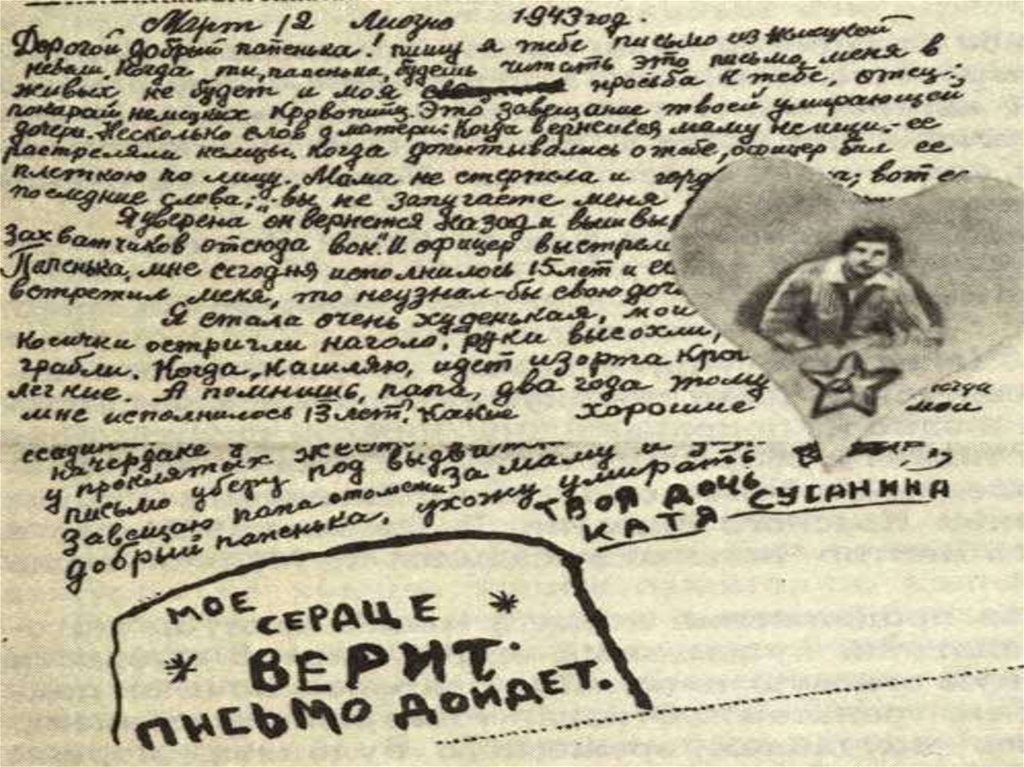 Март 12 Лиозно 1943 год.
Дорогой добрый папенька! пишу я тебе письмо из немецкой
неволи. Когда ты, папенька, будешь читать это письмо, меня в
живых не будет и моя просьба к тебе, отец:
покарай немецких кровопийц. Это завещание твоей умирающей
дочери. Несколько слов о матери: Когда вернешься маму не ищи,- ее
растреляли немцы. Когда допытывались о тебе, офицер бил ее
плеткою по лицу. Мама не стерпела и вот ее
последние слова: "вы не запугаете меня
Я уверена он вернется назад и
захватчиков отсюда вон". И офицер
Папенька, мне сегодня исполнилось 15 лет и
встретил меня, то неузнал-бы свою
Я стала очень худенькая, мои
косички остригли наголо, руки высохли,
грабли. Когда кашляю, идет изорта
легкие. А помнишь, папа, два года тому когда
мне исполнилось 13 лет? Какие хорошие мои
начердаке
у проклятых
письмо уберу под
Завещаю папа отомсти за маму и
добрый папенька. ухожу умирать
ТВОЯ ДОЧЬ
КАТЯ СУСАНИНА
МОЕ
СЕРДЦЕ
ВЕРИТ.
ПИСЬМО ДОЙДЕТ.